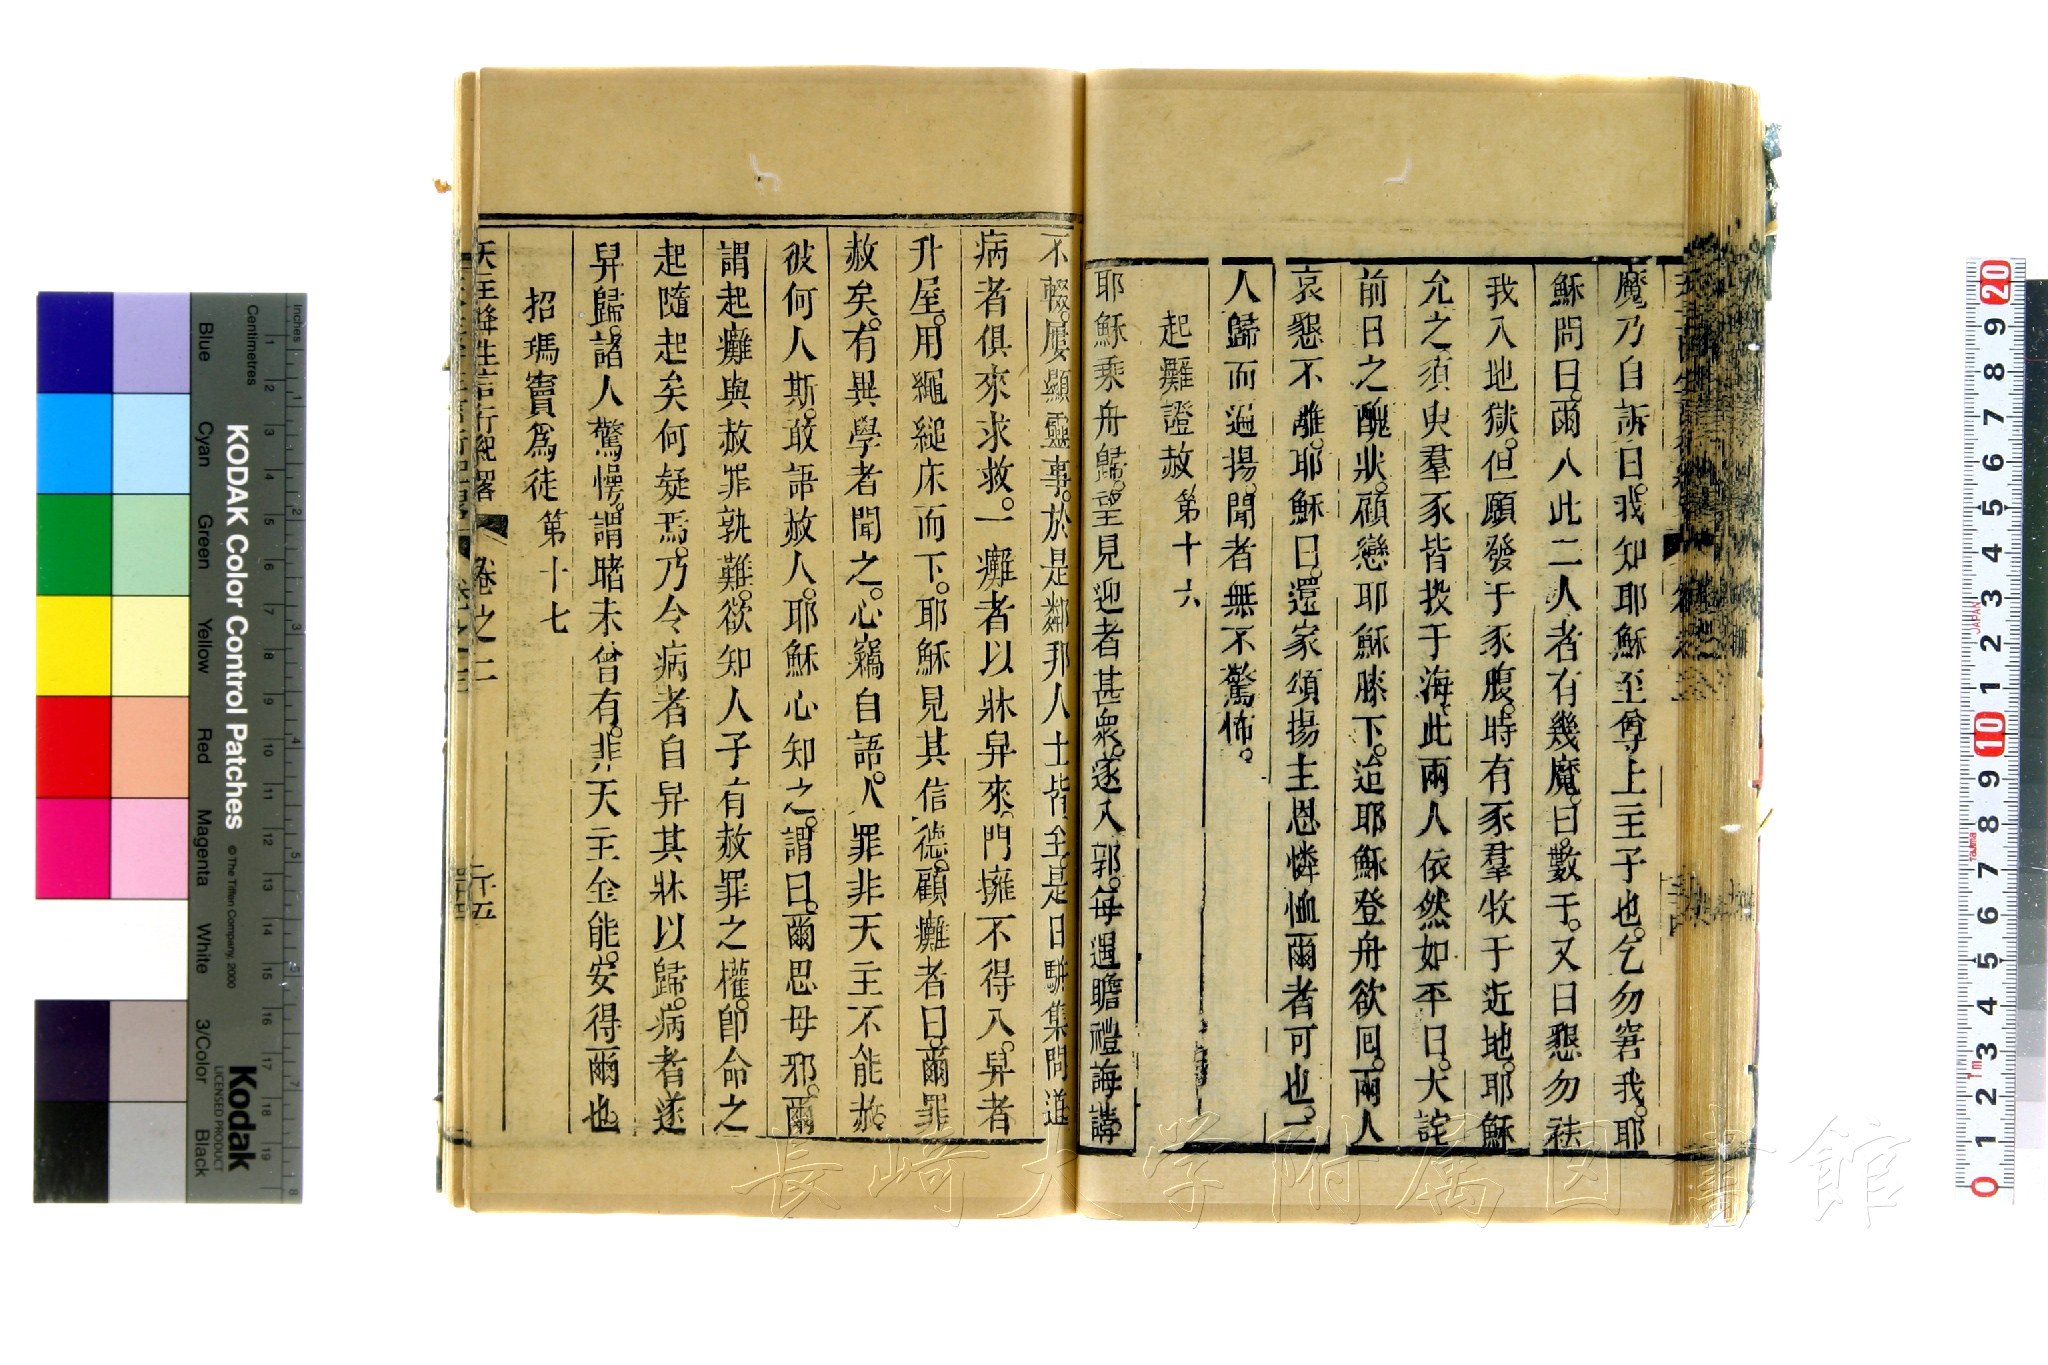 魔乃自訴曰。我知耶穌至尊上主子也。乞勿窘我。耶
穌問曰。爾入此二人者有幾魔。曰。數千。又曰懇勿祛
我入地獄。但願發于豕腹。時有豕羣牧于近地。耶穌
允之。須臾羣豕皆投于海。此兩人依然如平日。大詫
前日之醜狀。顧戀耶穌膝下。迨耶穌登舟欲回。兩人
哀懇不離。耶穌曰。還家頌揚主恩憐恤爾者可也。二
人歸而遍揚。聞者無不驚怖。
起癱證赦 第十六
耶穌乘舟歸。望見迎者甚衆。遂入郭。每遇瞻禮誨講
不輟。屢顯靈事。於是鄰邦人士皆至。是日駢集問道
病者俱來求救。一癱者以牀舁來。門擁不得入。舁者
升屋。用繩縋床而下。耶穌見其信德。顧癱者曰。爾罪
赦矣。有異學者聞之。心竊自語。人罪非天主不能赦。
彼何人斯。敢語赦人。耶穌心知之。謂曰。爾思毋邪。爾
謂起癱與赦罪孰難。欲知人子有赦罪之權。卽命之
起隨起矣何疑焉。乃令病者自舁其牀以歸。病者遂
舁歸。諸人驚愕。謂睹未曾有。非天主全能。安得爾也。
招瑪竇爲徒 第十七
天主降生言行紀畧 卷之二
Kodak
LICENSED PRODUCT
KODAK Color Control Patches
© The Tiffen Company, 2000
Inches
Centimetres
Blue
Cyan
Green
Yellow
Red
Magenta
White
3/Color
Black
長崎大学附属図書館
JAPAN
Tajima
1m